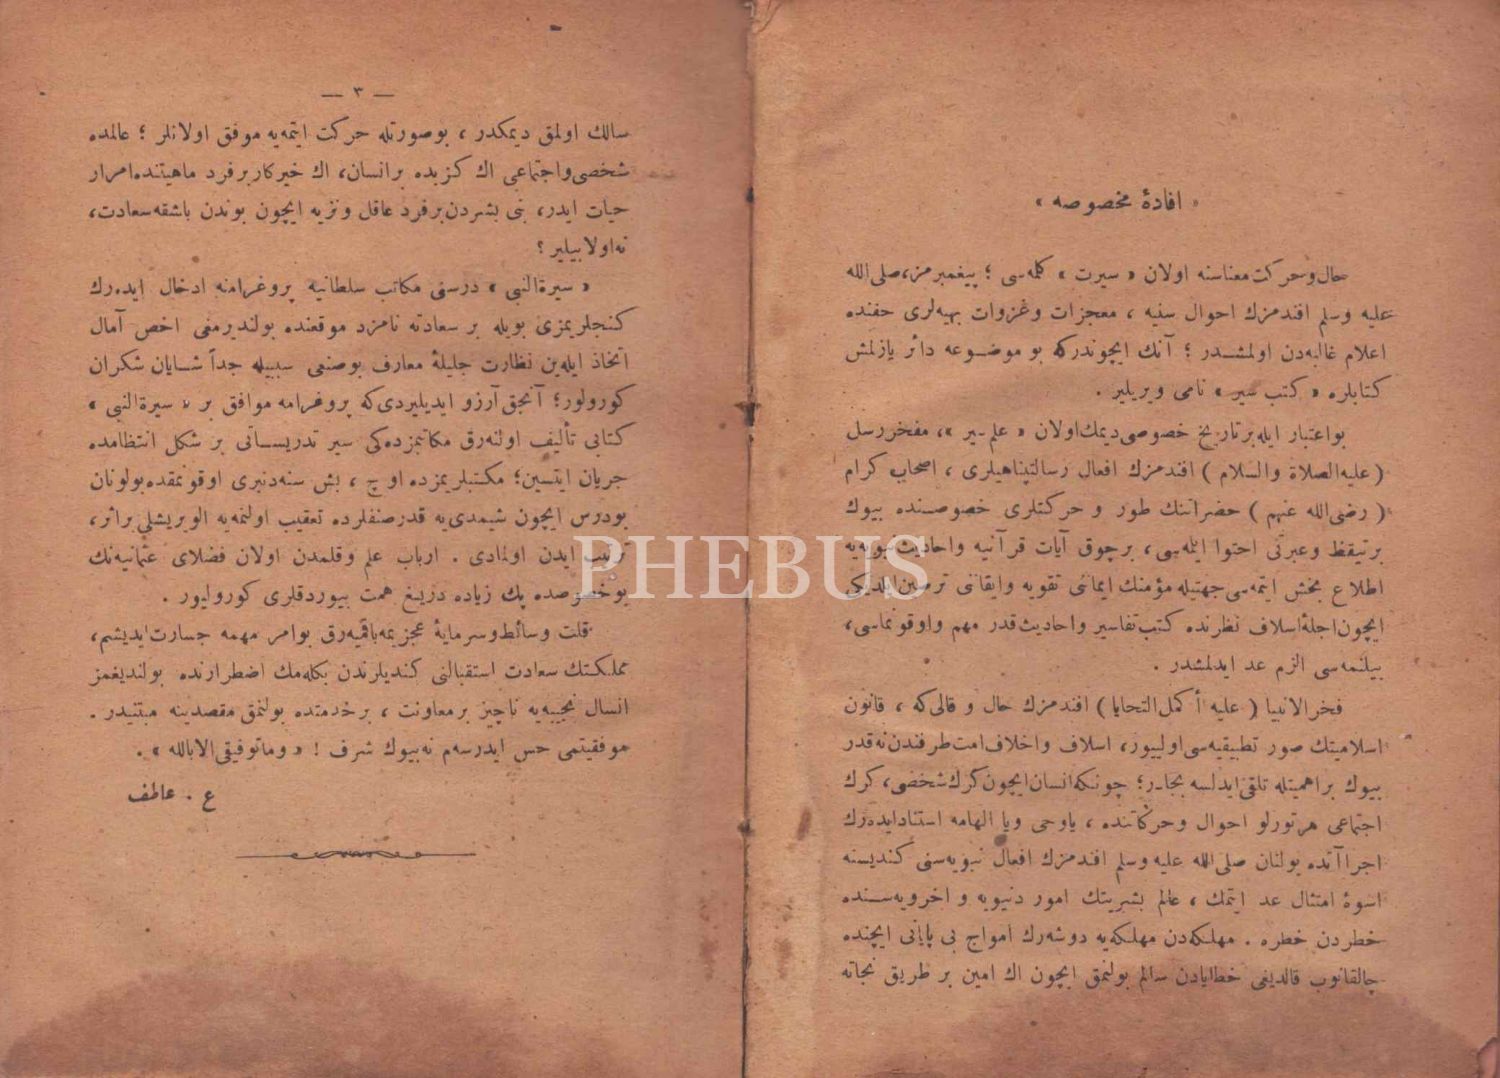 « افادهٔ مخصوصه »
حال وحركت معناسنه اولان « سیرت » كلمه‌سی ؛ پیغمبرمز، صلی‌الله
علیه وسلم افندمزك احوال سنیه ، معجزات وغزوات بهیه‌لری حقنده
اعلام غالبه‌دن اولمشـدر ؛ آنك ایچوندركه بو موضـوعه دائر یازلمش
كتابلره « كتب سیر » نامی ویریلیر .
بواعتبار ایله بر تاریخ خصوصی دیمك اولان « علم سیر »، مفخر رسل
( علیه‌الصلاة والسلام ) افندمزك افعال رسالتپناهیلری ، اصحاب كرام
( رضی‌الله عنهم ) حضراتنك طور و حركتلری خصوصـنده بیوك
بر تیقظ وعبرتی احتوا ایلمه‌سی ، برچوق آیات قرآنیه واحادیث نبویه‌یه
اطلاع بخش ایتمه‌سی جهتیله مؤمنك ایمانی تقویه وایقاننی ترصین ایلدیكی
ایچون اجلهٔ اسلاف نظرنده كتب تفاسیر واحادیث قدر مهم واوقونماسی،
بیلنمه‌سی الزم عد ایدلمشدر .
فخرالانبیا ( علیه أكمل‌التحایا ) افندمزك حال و قالی كه ، قانون
اسلامیتك صور تطبیقیه‌سی اولییور، اسلاف واخلاف امت طرفندن نه قدر
بیوك بر اهمیتله تلقی ایدلسه بجادر؛ چونكه انسان ایچون كرك شخصی، كرك
اجتماعی هرتورلو احوال وحركاتنده ، یاوحی ویا الهامه استناد ایده‌رك
اجراآتده بولنان صلی‌الله علیه وسلم افندمزك افعال نبویه‌سنی كندیسنه
اسوهٔ امتثال عد ایتمك ، عالم بشریتك امور دنیویه و اخرویه‌سـنده
خطردن خطره . مهلكه‌دن مهلكه‌یه دوشه‌رك امواج بی پایانی ایچنده
چالقانوب قالدیغی خطایادن سالم بولنمق ایچون اك امین بر طریق نجاته
— ٣ —
سالك اولمق دیمكدر ، بوصورتله حركت ایتمه‌یه موفق اولانلر ؛ عالمده
شخصی واجتماعی اك كزیده برانسان، اك خیركار بر فرد ماهیتنده امرار
حیات ایدر، بنی بشردن بر فرد عاقل ونزیه ایچون بوندن باشقه سعادت،
نه اولابیلیر ؟
« سیرةالنبی » درسنی مكاتب سلطانیه پروغرامنه ادخال ایده‌رك
كنجلریمزی بویله بر سعادته نامزد موقعنده بولندیرمغی اخص آمال
اتخاذ ایله‌ین نظارت جلیلهٔ معارف بو صنعی سببیله جداً شـایان شكران
كورولور؛ آنجق آرزو ایدیلیردی كه پروغرامه موافق بر « سیرةالنبی »
كتابی تألیف اولنه‌رق مكاتبمزده‌كی سیر تدریسـاتی بر شكل انتظامده
جریان ایتسین؛ مكتبلریمزده اوچ ، بش سنه‌دنبری اوقونمقده بولونان
بودرس ایچون شیمدی‌یه قدر صنفلرده تعقیب اولنمه‌یه الویریشلی براثر،
ترتیب ایدن اولمادی . ارباب علم وقلمدن اولان فضلای عثمانیه‌نك
بوخصوصده پك زیاده دریغ همت بیوردقلری كورولیور .
قلت وسائط وسرمایهٔ عجزیمه باقمیه‌رق بوامر مهمه جسارت ایدیشم،
مملكتك سعادت استقبالنی كندیلرندن بكله‌مك اضطرارنده بولندیغمز
انسال نجیبه‌یه ناچیز بر معاونت ، بر خدمتده بولنمق مقصدینه مبتنیدر .
موفقیتمی حس ایدرسه‌م نه بیوك شرف ! « وماتوفیقی الا بالله » .
ع . عاطف
PHEBUS